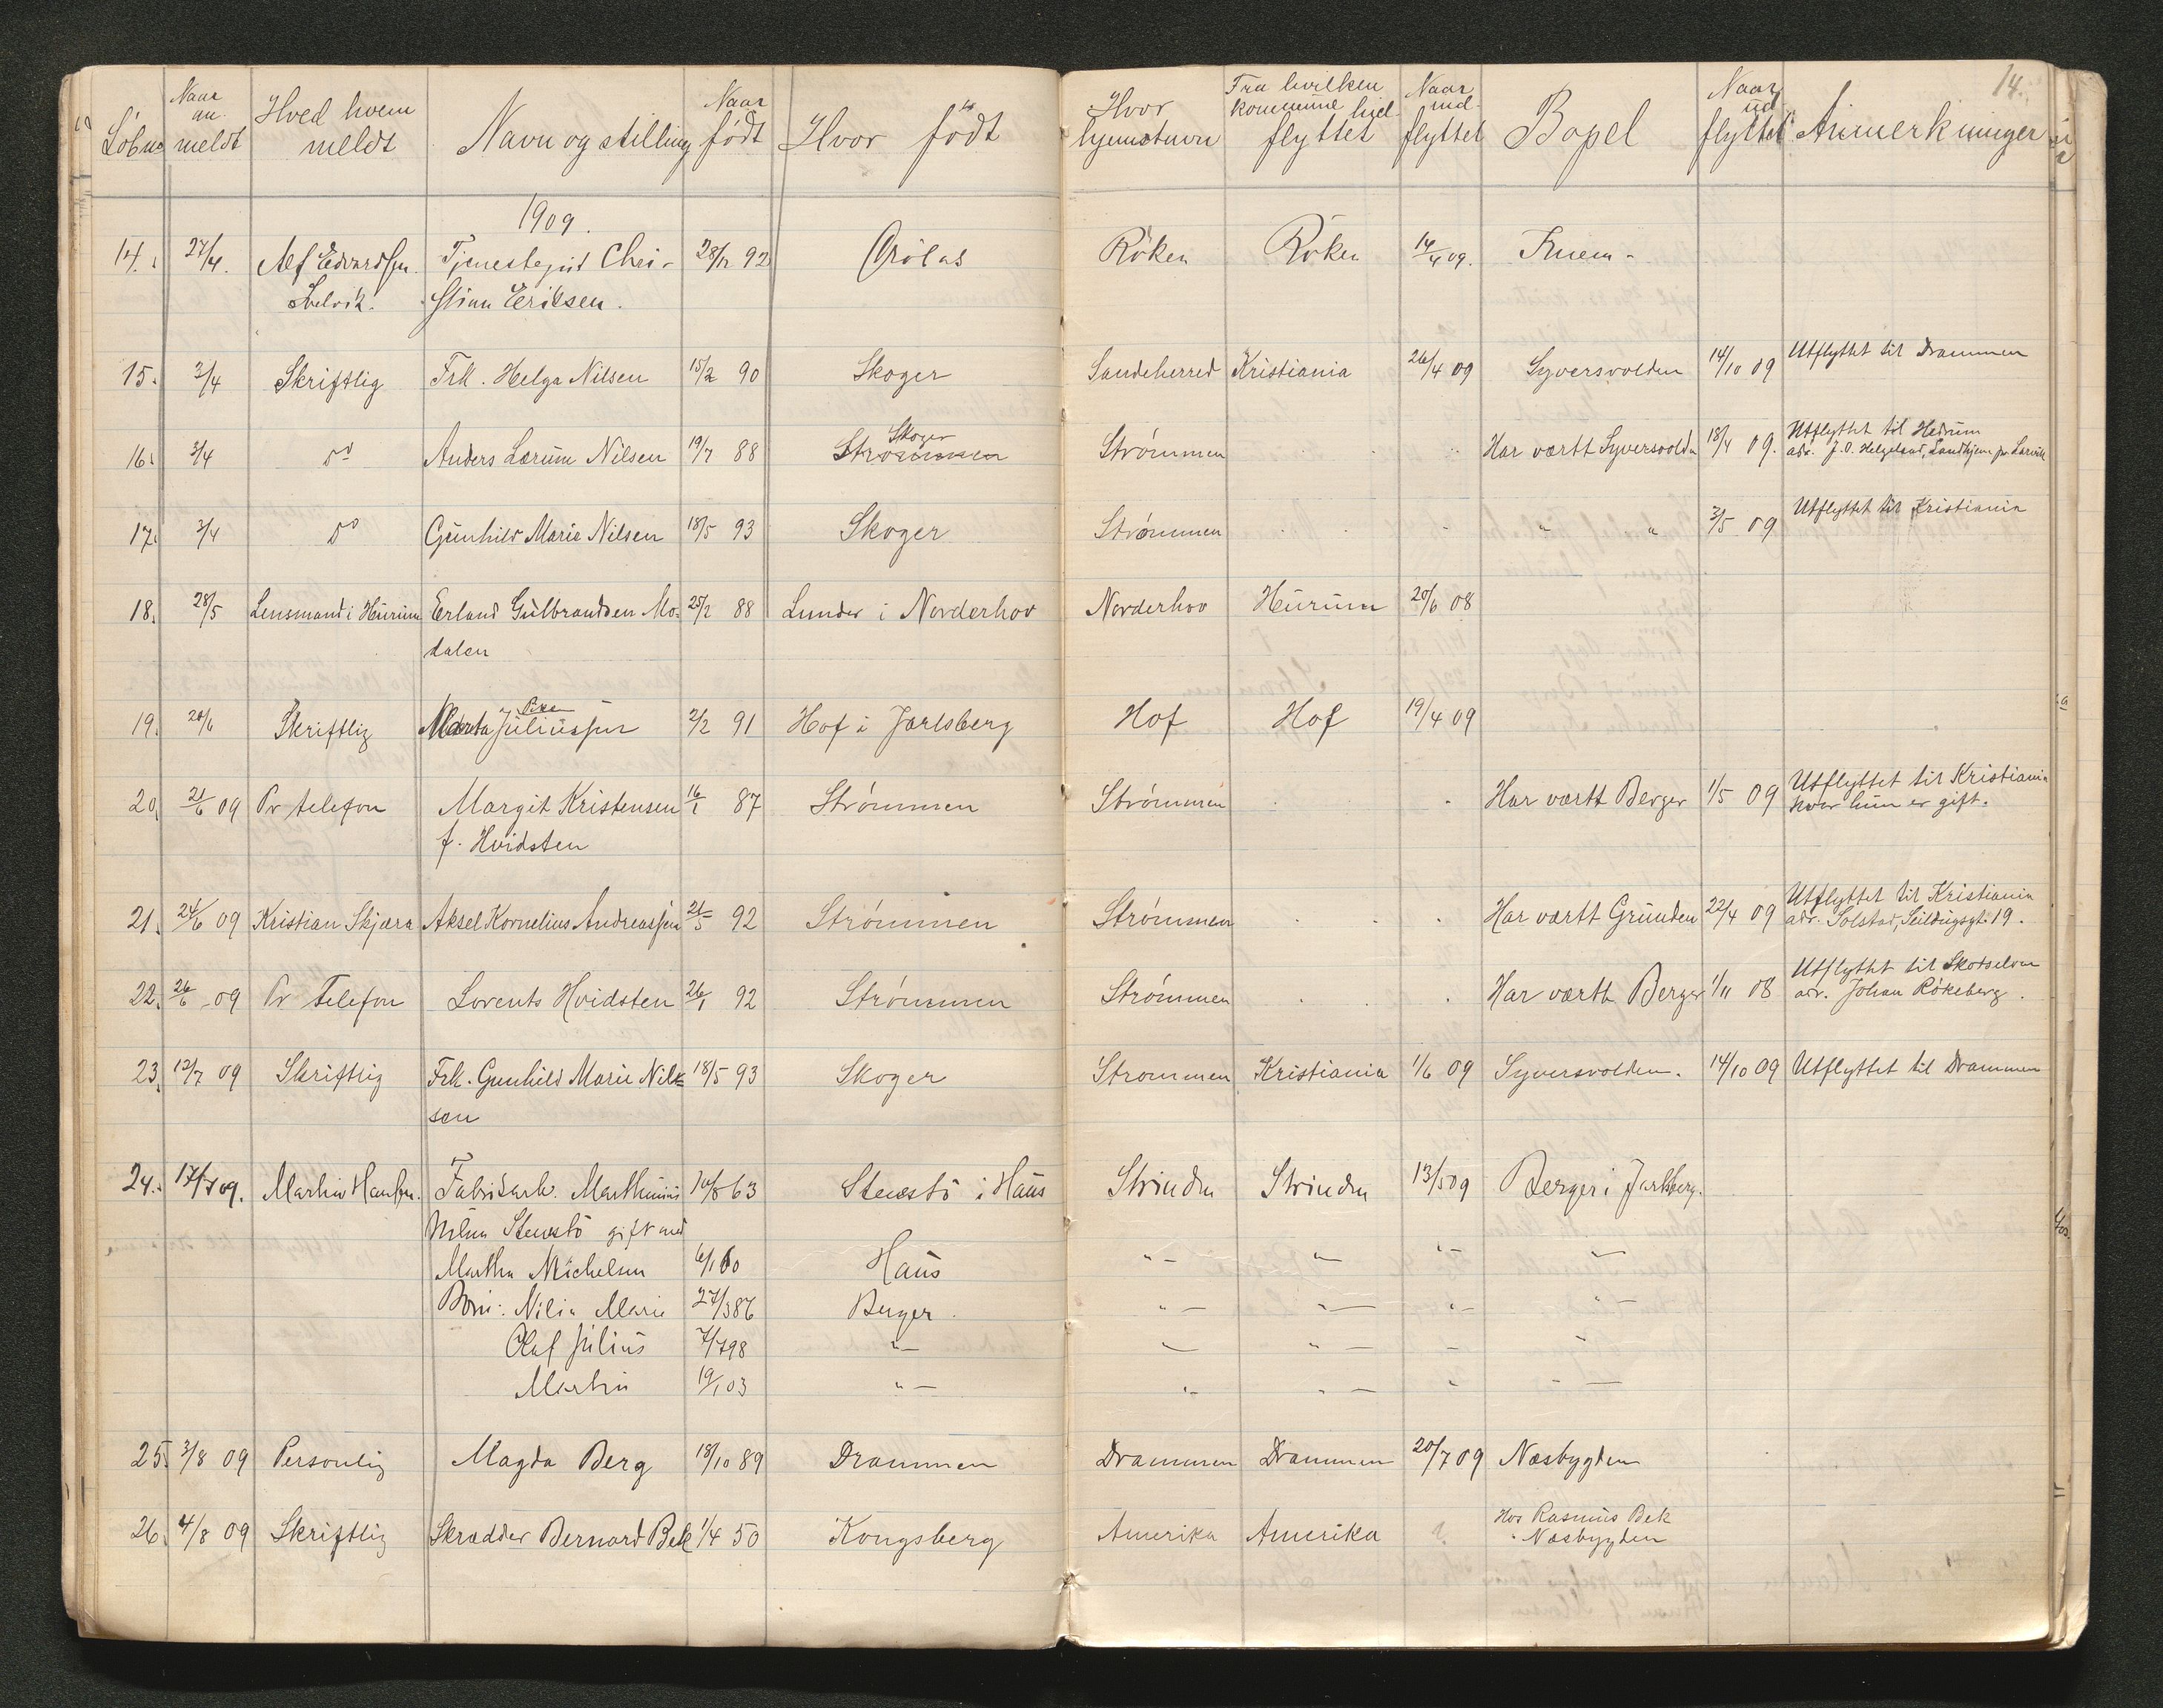 14.
Løbno Naar an- meldt Hved hvem meldt Navn og stilling Naar født Hvor født Hvor hjemstavn Fra hvilken kommune hid- flyttet Naar ind- flyttet Bopel Naar ud flyttet Anmerkninger
1909.
14. 27/4. Alf Edvardsen Tjenestepist Chri- 28/12 92 Røken Røken 14/4 09. Knem-
Svelvik. stian Eriksen.
15. 3/4 Skriftlig Frk. Helga Nilsen 15/2 90 Skoger Sandeherred Kristiania 26/4 09 Syversvolden 14/10 09 Utflyttet til Drammen
Skoger
16. 3/4 Do Anders Lærum Nilsen 19/7 88 Strømmen Strømmen . . . Har vært Syversvolden 18/4 09. Utflyttet til Hedrum
adr. J. O. Helgeland, Landhjem pr Larvik
17. 3/4 Do Gunhild Marie Nilsen 18/5 93 Skoger Strømmen . . - " " 3/5 09 Utflyttet til Kristiania
18. 28/5 Lensmand i Hurum Erland Gulbrandsen Mo- 25/2 88 Lunder i Norderhov Norderhov Hurum 20/6 08
dalen
Pike
19. 20/6 Skriftlig Marta Juliussen 2/2 91 Hof i Jarlsberg Hof Hof 19/4 09
20. 21/6 09 Pr telefon Margit Kristensen 16/1 87 Strømmen Strømmen . . Har værtt Berger 1/5 09 Utflyttet til Kristiania
f. Hvidsten hvor hun er gift.
21. 24/6 09 Kristian Skjæra Aksel Kornelius Andreassen 21/5 92 Strømmen Strømmen . . . Har værtt Grunden 22/4 09 Utflyttet til Kristiania
adr. Solstad, 19.
22. 26/6 09 Pr Telefon Lorents Hvidsten 26/1 92 Strømmen Strømmen . . . Har værtt Berger 1/11 08 Utflyttet til Skotselven
adr. Johan Røkeberg.
23. 12/7 09 Skriftlig Frk. Gunhild Marie Nil- 18/5 93 Skoger Strømmen Kristiania 1/6 09 Syversvolden. 14/10 09 Utflyttet til Drammen
sen
24. 17/7 09. Martin Hansen. Fabrikarb. Marthinius 10/8 63 Stensbø i Haus Strinden Strinden 13/5 09 Berger i Jarlsberg.
Nilsen Stensbø gift med
Martha Michelsen 6/1 60 Haus "- "- "- "-
Born: Nilia Marie 27/3 86 Berger. "- "- "- "-
Olaf Julius 7/7 98 "- "- "- - "-
Martin 19/1 03 "- "- "- - - "-
25. 3/8 09 Personlig Magda Berg 18/10 89 Drammen Drammen Drammen 20/7 09 Næsbygden
26. 4/8 09 Skriftlig Skrædder Bernard Bek 1/4 50 Kongsberg Amerika Amerika ? Hos Rasmus Bek
i Næsbygden